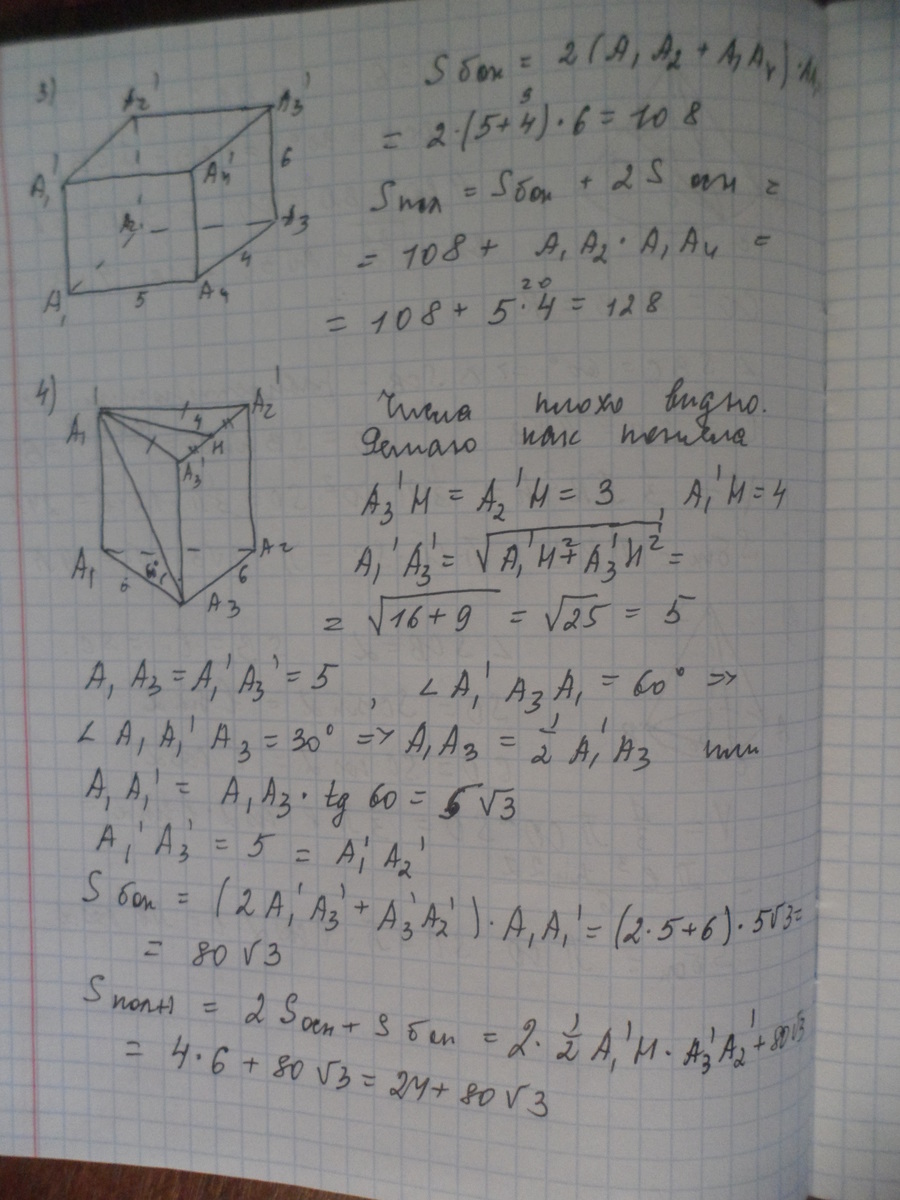 3)
A₂'
A₃'
A₁'
A₄'
6
A₃
4
A₁
5
A₄
S бок = 2(A₁A₂ + A₁A₄) ·
= 2·(5+4)·6 = 108
9
S пол = S бок + 2S осн =
= 108 + A₁A₂ · A₁A₄ =
20
= 108 + 5·4 = 128
4)
A₁'
4
A₂'
H
A₃'
A₁
A₂
60°
6
A₃
Числа плохо видно.
Делаю как поняла
A₃'H = A₂'H = 3 A₁'H = 4
A₁'A₃' = √A₁'H² + A₃'H² =
= √16+9 = √25 = 5
A₁A₃ = A₁'A₃' = 5, ∠A₁'A₃A₁ = 60° =>
∠A₁A₁'A₃ = 30° => A₁A₃ = 1/2 A₁'A₃ или
A₁A₁' = A₁A₃ · tg 60 = 5√3
A₁'A₃' = 5 = A₁'A₂'
S бок = (2A₁'A₃' + A₃'A₂') · A₁A₁' = (2·5+6)·5√3 =
= 80√3
S полн = 2Sосн + S бок = 2 · 1/2 A₁'H · A₃'A₂' + 80√3
= 4·6 + 80√3 = 24 + 80√3